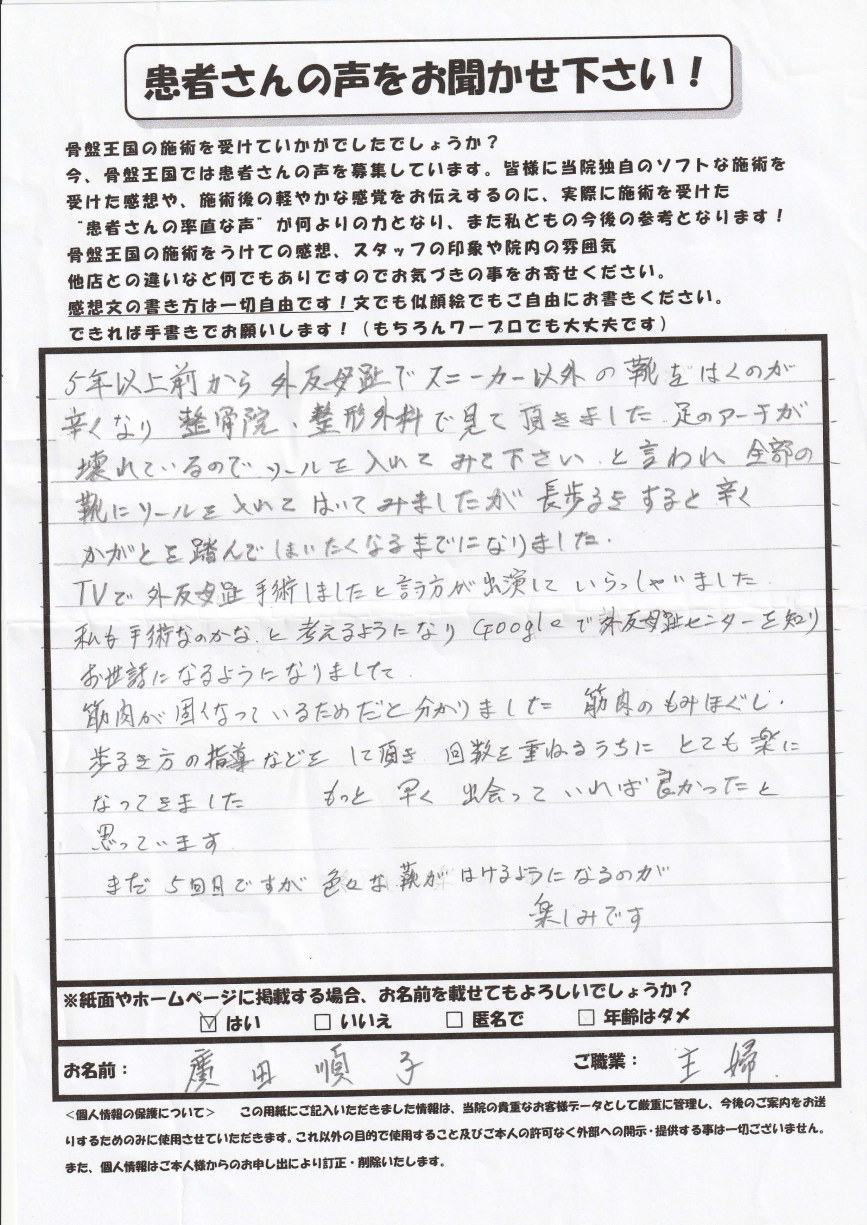 患者さんの声をお聞かせ下さい！
骨盤王国の施術を受けていかがでしたでしょうか？
今、骨盤王国では患者さんの声を募集しています。皆様に当院独自のソフトな施術を
受けた感想や、施術後の軽やかな感覚をお伝えするのに、実際に施術を受けた
“患者さんの率直な声”が何よりの力となり、また私どもの今後の参考となります！
骨盤王国の施術をうけての感想、スタッフの印象や院内の雰囲気
他店との違いなど何でもありですのでお気づきの事をお寄せください。
感想文の書き方は一切自由です！文でも似顔絵でもご自由にお書きください。
できれば手書きでお願いします！（もちろんワープロでも大丈夫です）
5年以上前から 外反母趾でスニーカー以外の靴をはくのが
辛くなり 整骨院、整形外科で見て頂きました。足のアーチが
壊れているので ソールを入れてみて下さい。と言われ 全部の
靴にソールを入れてはいてみましたが 長歩るきすると辛く
かがとを踏んでしまいたくなるまでになりました。
TVで外反母趾手術しましたと言う方が出演していらっしゃいました
私も手術なのかな。と考えるようになり Googleで外反母趾センターを知り
お世話になるようになりました
筋肉が固くなっているためだと分かりました 筋肉のもみほぐし、
歩るき方の指導などをして頂き 回数を重ねるうちに とても楽に
なってきました もっと早く出会っていれば良かったと
思っています
まだ5回目ですが色々な靴がはけるようになるのが
楽しみです
※紙面やホームページに掲載する場合、お名前を載せてもよろしいでしょうか？
☑ はい □ いいえ □ 匿名で □ 年齢はダメ
お名前： 廣田 順子 ご職業： 主婦
＜個人情報の保護について＞ この用紙にご記入いただきました情報は、当院の貴重なお客様データとして厳重に管理し、今後のご案内をお送
りするためのみに使用させていただきます。これ以外の目的で使用すること及びご本人の許可なく外部への開示・提供する事は一切ございません。
また、個人情報はご本人様からのお申し出により訂正・削除いたします。